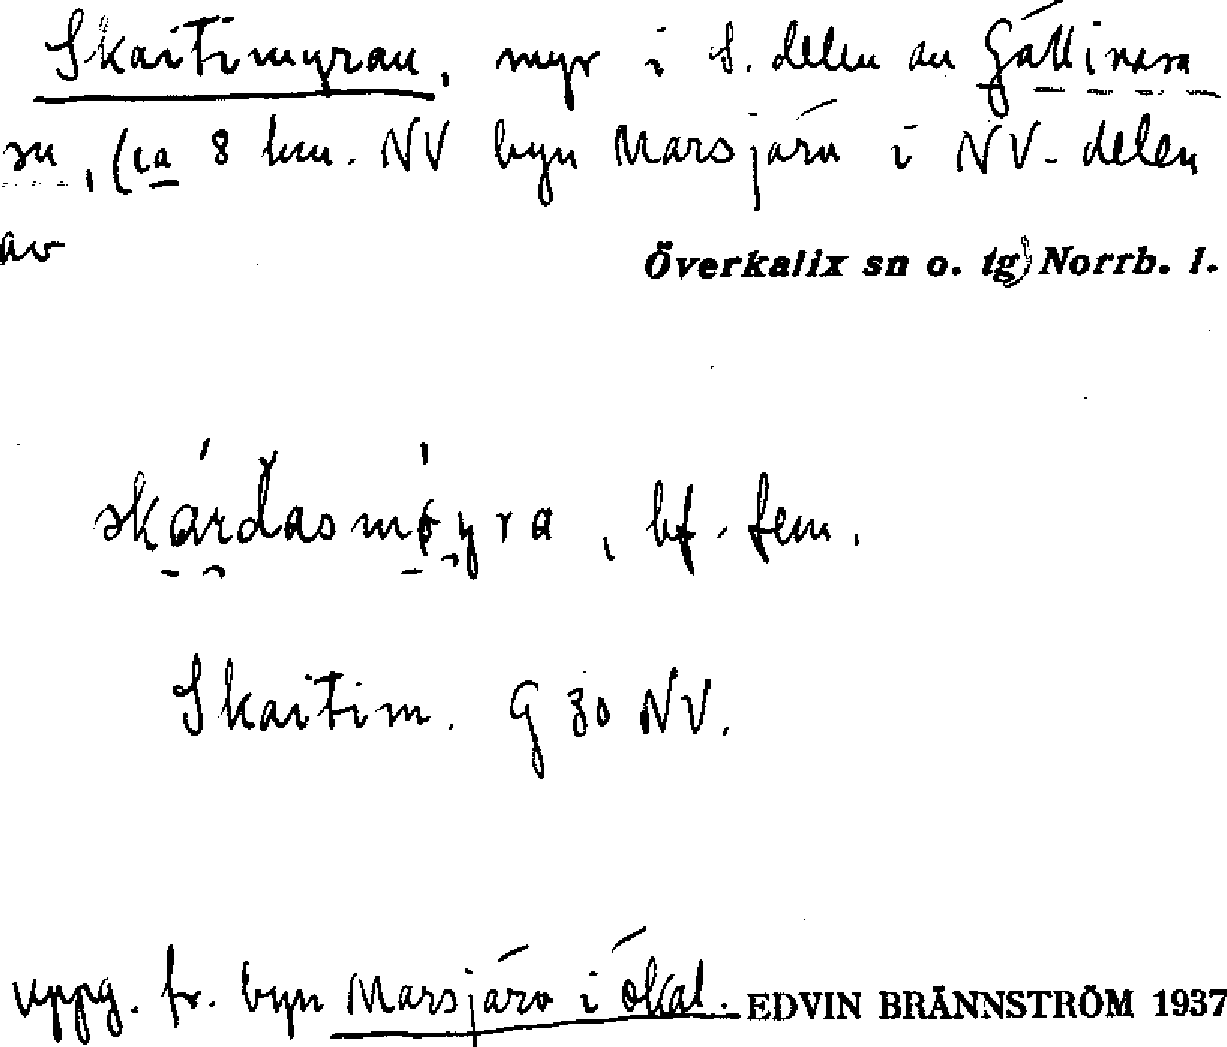 Skaitimyran, myr i S. delen av Gällivare
sn, (ca 8 km. NV byn Marsjärv i NV-delen
av
Överkalix sn o. tg) Norrb. l.
bf. fem.
Skaitim. G 30 NV.
uppg. fr. byn Marsjärv i Ökal. EDVIN BRÄNNSTRÖM 1937